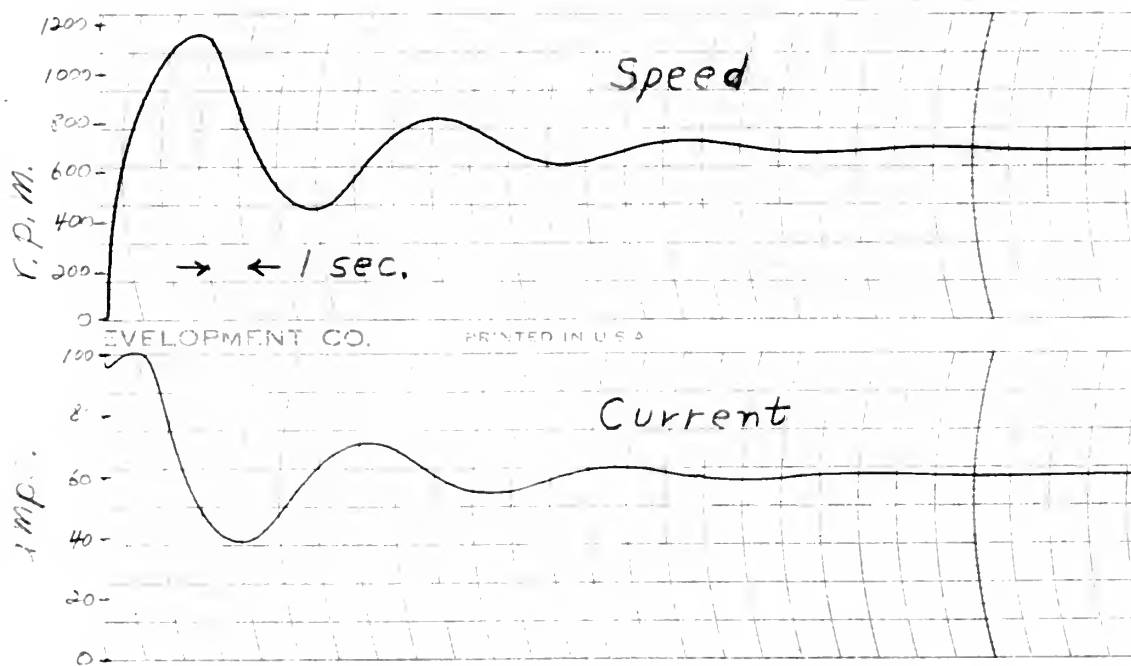 1200
1000
800
600
400
200
0
r.p.m.
Speed
→ ← 1 sec.
EVELOPMENT CO. PRINTED IN U S A
100
8
60
40
20
0
mp.
Current